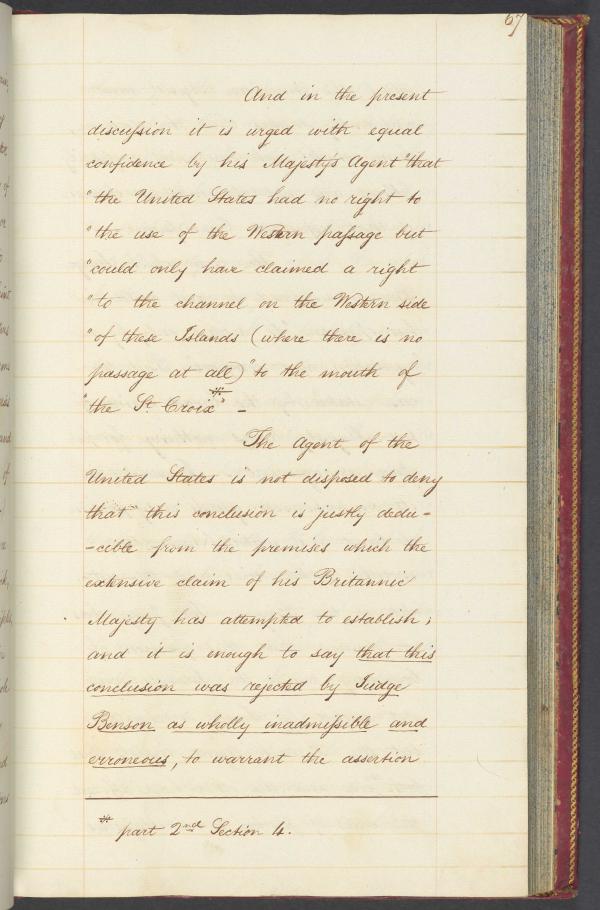 67
And in the present
discussion it is urged with equal
confidence by his Majesty's Agent "that
"the United States had no right to
"the use of the Western passage but
"could only have claimed a right
"to the channel on the Western side
"of these Islands (where there is no
passage at all) "to the mouth of
"the St. Croix" * –
The Agent of the
United States is not disposed to deny
that this conclusion is justly dedu-
-cible from the premises which the
extensive claim of his Britannic
Majesty has attempted to establish;
and it is enough to say that this
conclusion was rejected by Judge
Benson as wholly inadmissible and
erroneous, to warrant the assertion
* part 2nd Section 4.